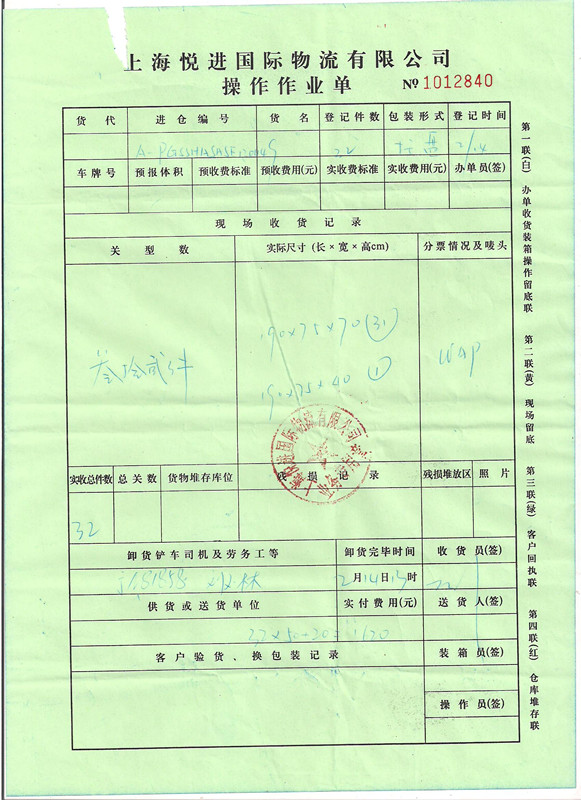 上海悦进国际物流有限公司
操作作业单
№ 1012840
货代 进仓编号 货名 登记件数 包装形式 登记时间
32 托盘 2/14
车牌号 预报体积 预收费标准 预收费用(元) 实收费标准 实收费用(元) 办单员(签)
现场收货记录
关型数 实际尺寸(长×宽×高cm) 分票情况及唛头
190×75×70 (31)
叁拾贰件
190×75×40 (1)
实收总件数 总关数 货物堆存库位 残损记录 残损堆放区 照片
32
卸货铲车司机及劳务工等 卸货完毕时间 收货员(签)
2月14日15时
供货或送货单位 实付费用(元) 送货人(签)
客户验货、换包装记录 装箱员(签)
操作员(签)
第一联(白) 办单收货装箱操作留底联
第二联(黄) 现场留底
第三联(绿) 客户回执联
第四联(红) 仓库堆存联